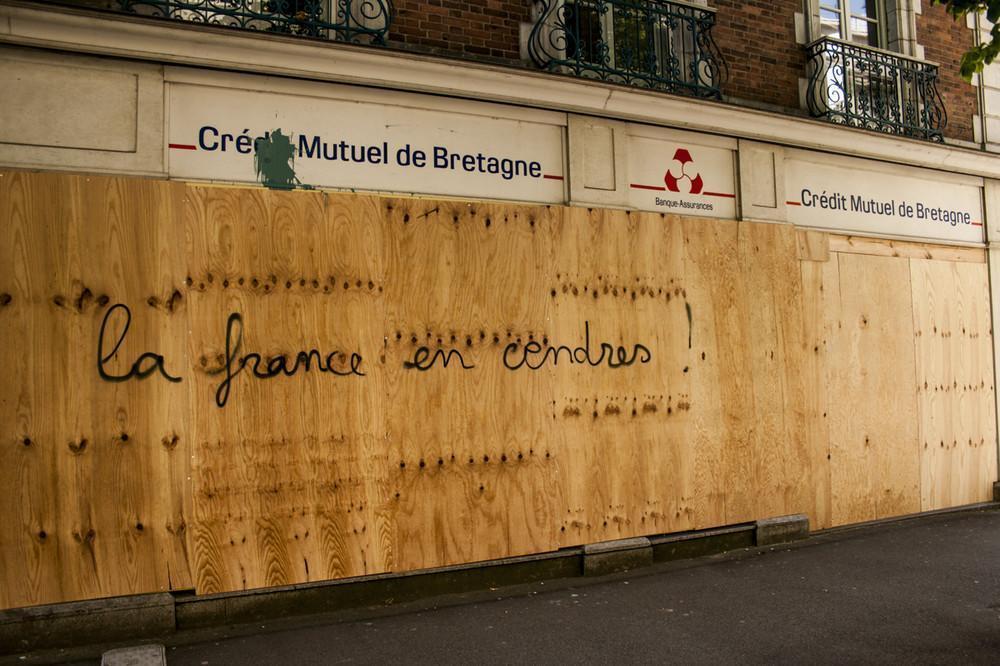 Créd Mutuel de Bretagne
Banque-Assurances
Crédit Mutuel de Bretagne
la france en cendres !